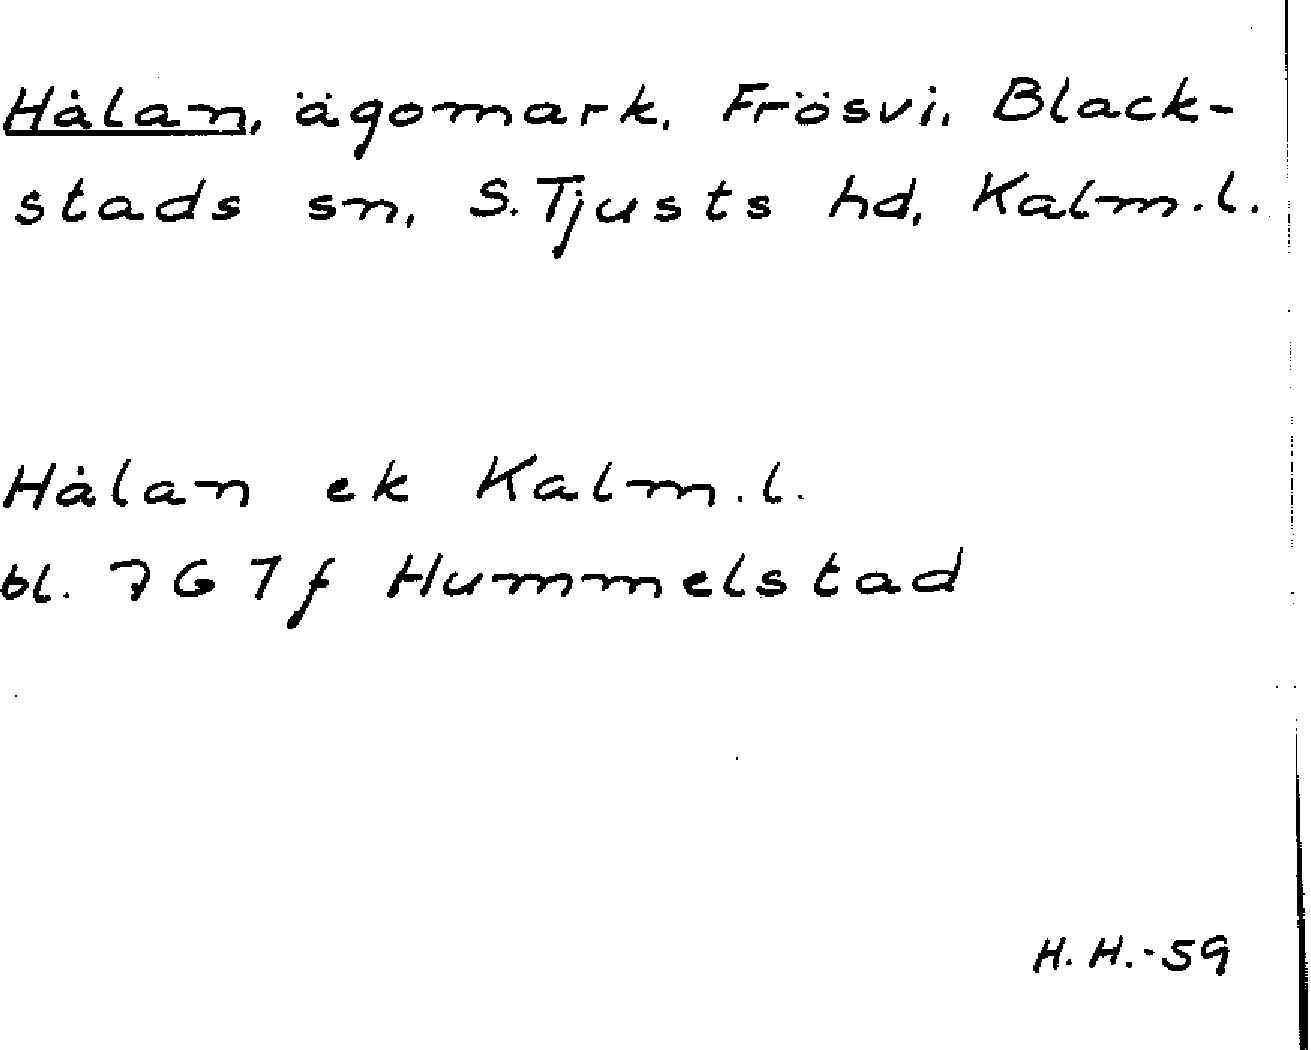 Hålan, ägomark, Frösvi, Black-
stads sn, S. Tjusts hd, Kalm. l.
Hålan ek Kalm. l.
bl. 7G 7f Hummelstad
H. H. -59